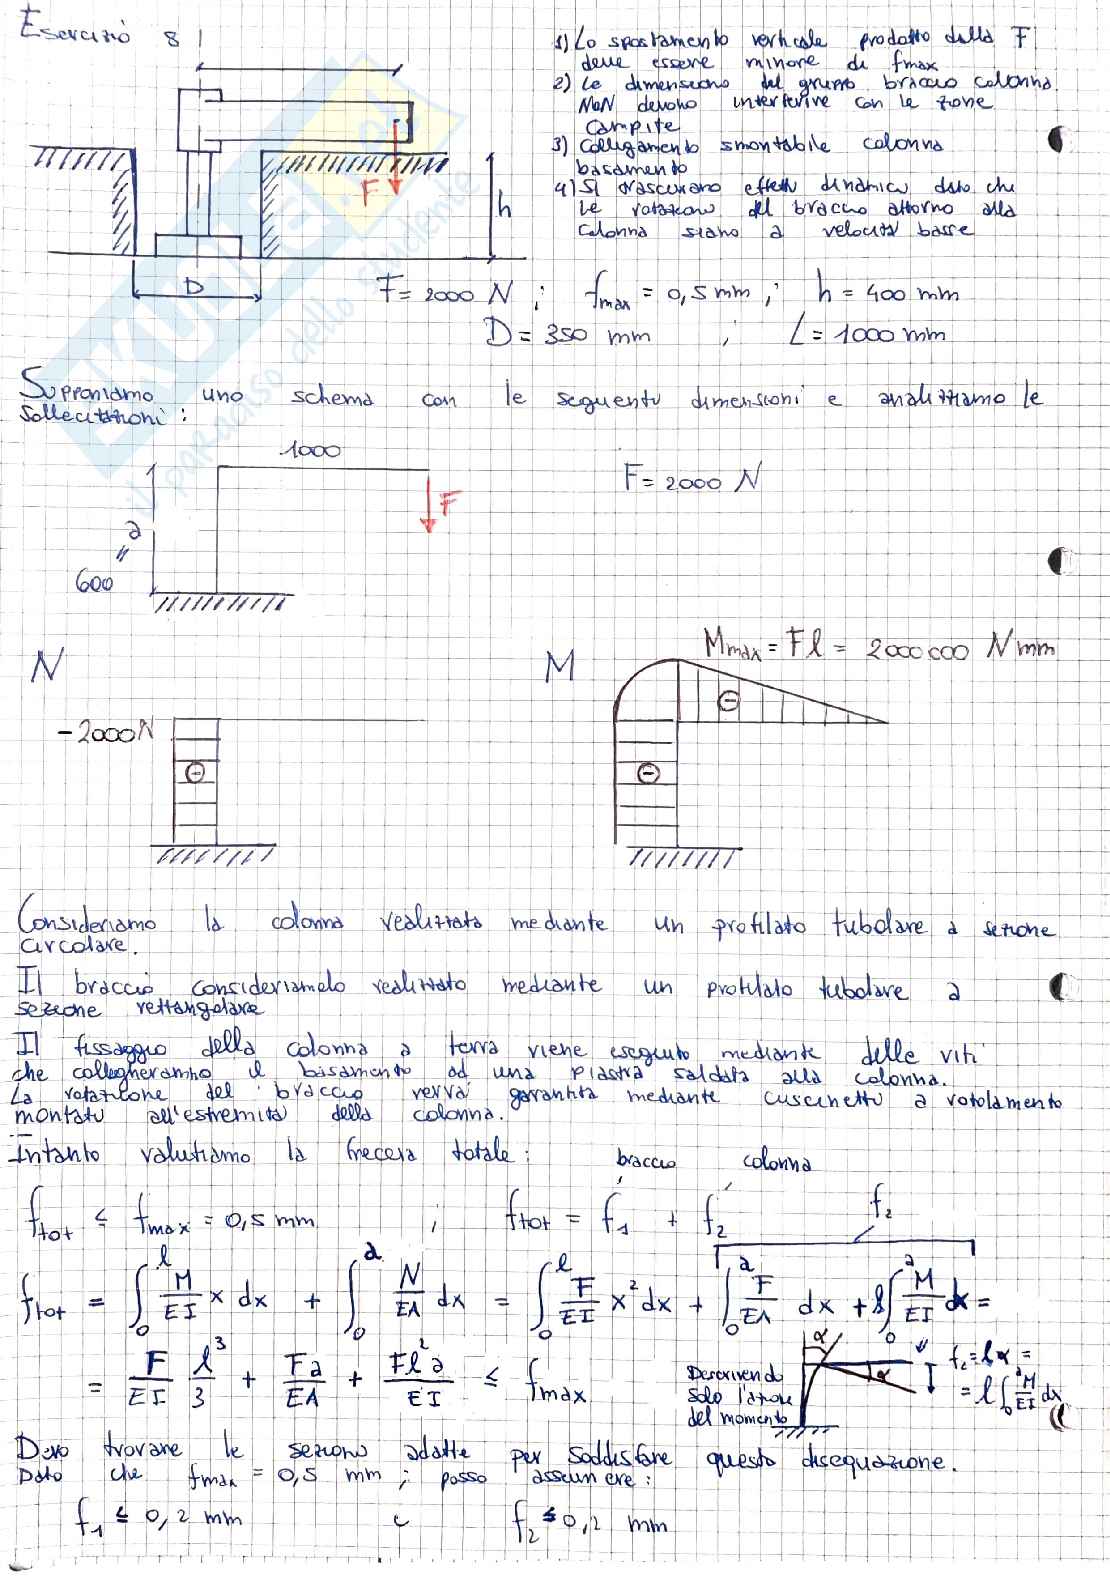 Esercizio 8
1) Lo spostamento verticale prodotto dalla F
deve essere minore di fmax
2) Le dimensiono del gruppo braccio colonna
NON devono interferire con le zone
campite
3) Collegamento smontabile colonna
basamento
4) Si trascurano effetti dinamici dato che
le rotazioni del braccio attorno alla
colonna siano a velocità basse
F
h
D
F = 2000 N ; fmax = 0,5 mm ; h = 400 mm
D = 350 mm ; L = 1000 mm
Supponiamo uno schema con le seguenti dimensioni e analizziamo le
sollecitazioni :
1000
F = 2000 N
F
a
=
600
N
M
Mmax = Fl = 2000000 Nmm
-2000N
Consideriamo la colonna realizzata mediante un profilato tubolare a sezione
circolare.
Il braccio consideriamolo realizzato mediante un profilato tubolare a
sezione rettangolare
Il fissaggio della colonna a terra viene eseguito mediante delle viti
che collegheranno il basamento ad una piastra saldata alla colonna.
La rotazione del braccio verrà garantita mediante cuscinetti a rotolamento
montati all'estremità della colonna.
Intanto valutiamo la freccia totale :
braccio colonna
ftot ≤ fmax = 0,5 mm ; ftot = f1 + f2
f2
ftot = ∫₀ˡ M/EI x dx + ∫₀ᵃ N/EA dx = ∫₀ˡ F/EI x² dx + ∫₀ᵃ F/EA dx + l∫₀ᵃ M/EI dx =
= F/EI l³/3 + Fa/EA + Fl²a/EI ≤ fmax
Descrivendo
solo l'azione
del momento
α
α
f2 = lα =
= l∫₀ᵃ M/EI dx
Devo trovare le sezioni adatte per soddisfare questa disequazione.
Dato che fmax = 0,5 mm ; posso assumere :
f1 ≤ 0,2 mm e f2 ≤ 0,2 mm
SKUOLA
il paradiso dello studente